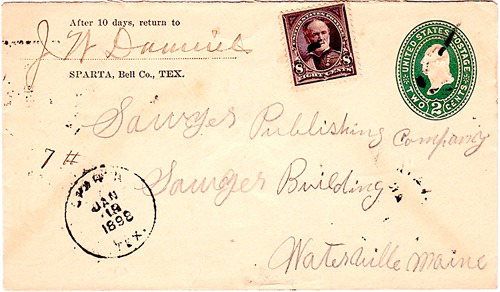 After 10 days, return to
J W Damiel
SPARTA, Bell Co., TEX.
8 EIGHT CENTS 8
UNITED STATES POSTAGE
TWO 2 CENTS
Sawyer Publishing Company
7 #
Sawyer Building
Waterville Maine
JAN
18
1898
TEX.